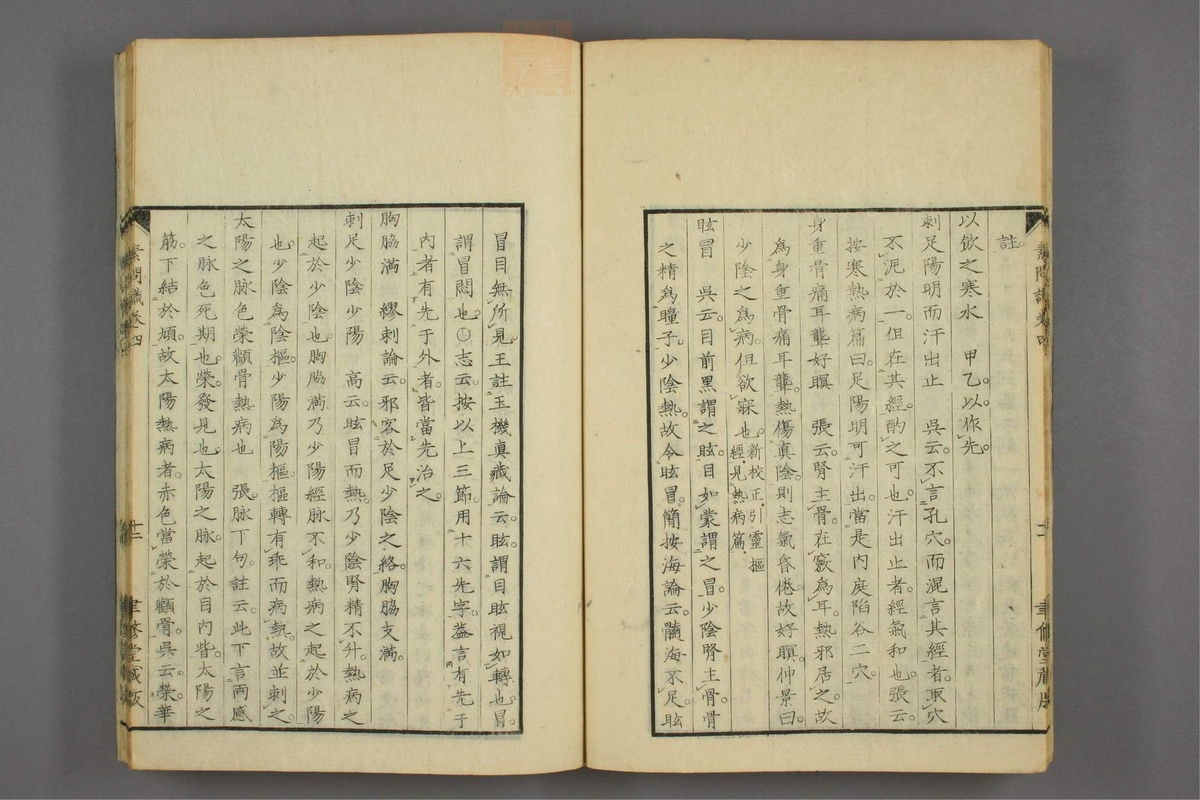 註
以飲之寒水　甲乙以作先
刺足陽明而汗出止　吳云不言孔穴而混言其經者取穴
不泥於一但在其經酌之可也汗出止者經氣和也張云
按寒熱病篇曰足陽明可汗出當是內庭陷谷二穴
身重骨痛耳聾好瞑　張云腎主骨在竅為耳熱邪居之故
為身重骨痛耳聾熱傷真陰則志氣昏倦故好瞑仲景曰
少陰之為病但欲寐也新校正引靈樞
經見熱病篇
眩冒　吳云目前黑謂之眩目如蒙謂之冒少陰腎主骨骨
之精為瞳子少陰熱故令眩冒簡按海論云髓海不足眩
冒目無所見王註玉機真藏論云眩謂目眩視如轉也冒
謂冒悶也○志云按以上三節用十六先字蓋言有先于
內者有先于外者皆當先治之
胸脇滿　繆刺論云邪客於足少陰之絡胸脇支滿
刺足少陰少陽　高云眩冒而熱乃少陰腎精不升熱病之
起於少陰也胸脇滿乃少陽經脈不和熱病之起於少陽
也少陰為陰樞少陽為陽樞樞轉有乖而病熱故並刺之
太陽之脈色榮顴骨熱病也　張脈下句註云此下言兩感
之脈色死期也榮發見也太陽之脈起於目內眥太陽之
筋下結於頄故太陽熱病者赤色當榮於顴骨吳云榮華
素問識卷四
廿三
聿修堂藏版